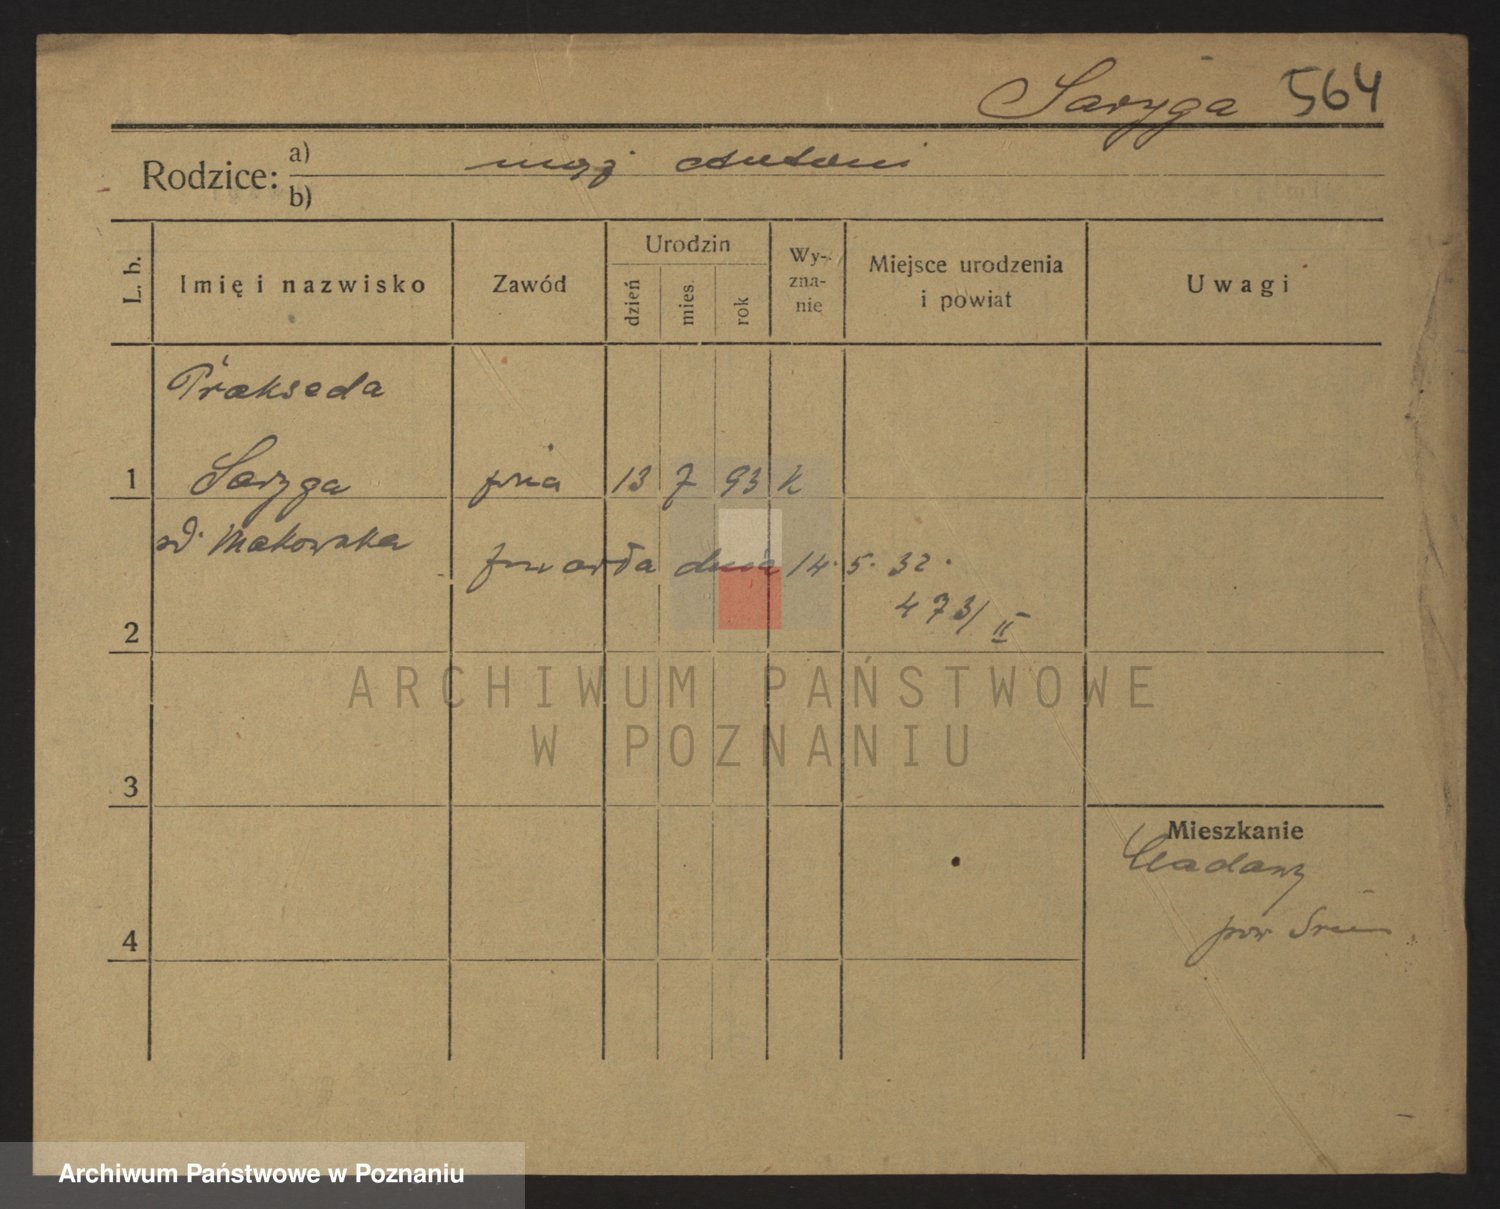 Saryga 564
Rodzice: a) mąż Antoni
b)
L. b.
Imię i nazwisko
Zawód
Urodzin
dzień
mies.
rok
Wy-
zna-
nie
Miejsce urodzenia
i powiat
Uwagi
Prakseda
1 Saryga 13 7 93 k
Makowska
zmarła dnia 14. 5. 32.
473/II
2
3
Mieszkanie
pow Śrem
4
ARCHIWUM PAŃSTWOWE
W POZNANIU
Archiwum Państwowe w Poznaniu